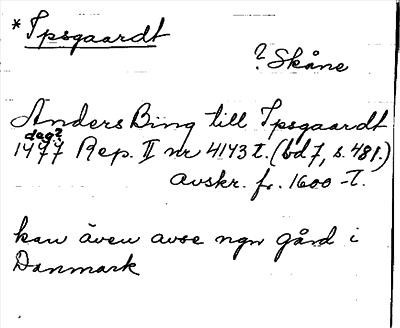 *Ipsgaardt
? Skåne
Anders Bing till Ipsgaardt
dag?
1477 Rep. II nr 4143 I. (bd 7, s. 481.)
avskr. fr. 1600-t.
kan även avse ngn gård i
Danmark